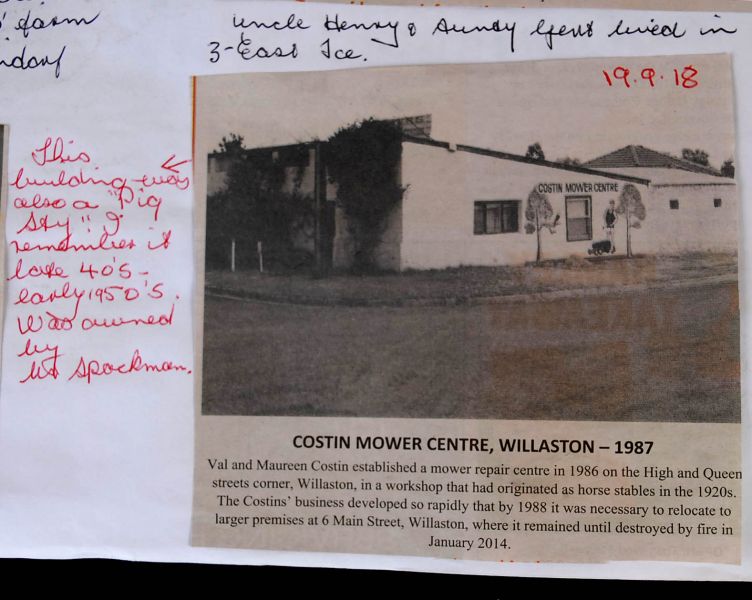 ' farm
uncle Henry & Aundy Gent lived in
3-East Tce.
19.9.18
This
building was
also a "Pig
Sty". I
remember it
late 40'S -
early 1950'S.
Was owned
by
Mr Spackman.
COSTIN MOWER CENTRE
COSTIN MOWER CENTRE, WILLASTON – 1987
Val and Maureen Costin established a mower repair centre in 1986 on the High and Queen
streets corner, Willaston, in a workshop that had originated as horse stables in the 1920s.
The Costins' business developed so rapidly that by 1988 it was necessary to relocate to
larger premises at 6 Main Street, Willaston, where it remained until destroyed by fire in
January 2014.